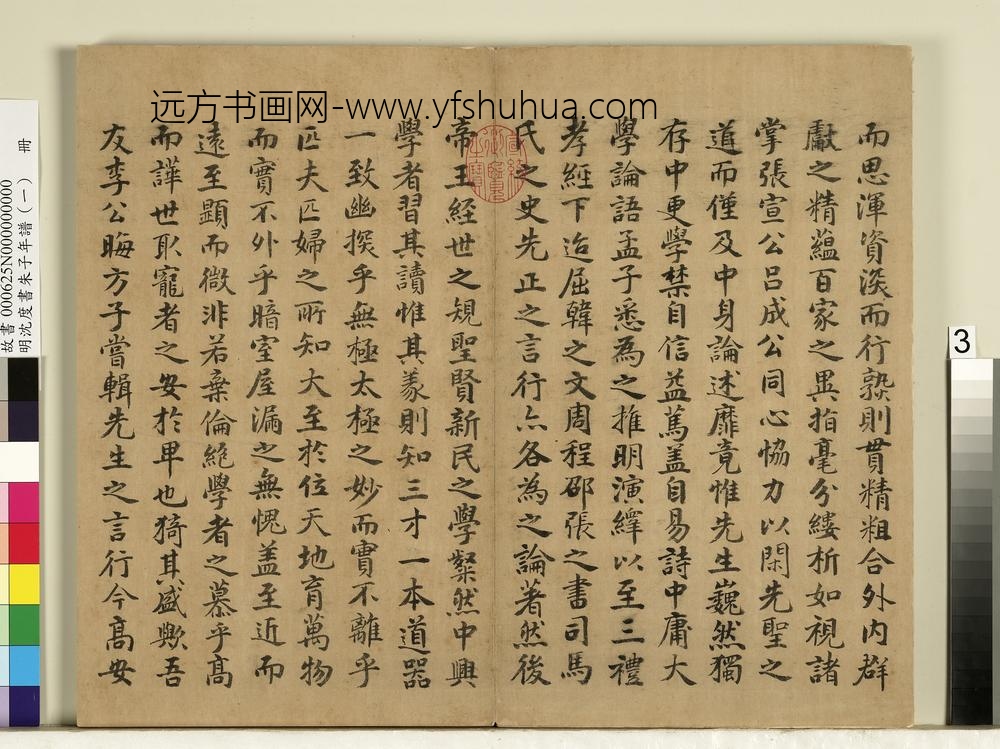 远方书画网-www.yfshuhua.com
而思渾資深而行熟則貫精粗合外內群
獻之精蘊百家之異指毫分縷析如視諸
掌張宣公呂成公同心協力以閑先聖之
道而僅及中身論述靡竟惟先生巍然獨
存中更學禁自信益篤盖自易詩中庸大
學論語孟子悉為之推明演繹以至三禮
孝經下迨屈韓之文周程邵張之書司馬
氏之史先正之言行亦各為之論著然後
帝王經世之規聖賢新民之學粲然中興
學者習其讀惟其義則知三才一本道器
一致幽探乎無極太極之妙而實不離乎
匹夫匹婦之所知大至於位天地育萬物
而實不外乎暗室屋漏之無愧盖至近而
遠至顯而微非若棄倫絕學者之慕乎高
而譁世取寵者之安於卑也猗其盛歟吾
友李公晦方子嘗輯先生之言行今高安
故書 000625N000000000
明沈度書朱子年譜(一) 冊
3